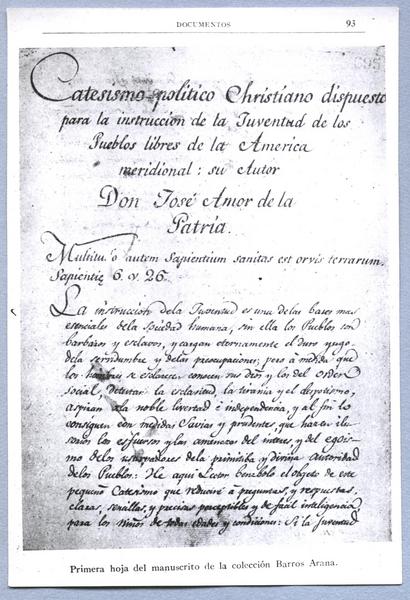 DOCUMENTOS 93
Catesismo político Christiano dispuesto
para la instruccion de la Juventud de los
Pueblos libres de la America
meridional: su Autor
Don José Amor de la
Patria.
Multitu. o autem Sapientium sanitas est orvis terrarum.
Sapientię 6. v. 26.
La instrucción dela Juventud es una delas bases mas
esenciales dela sociedad humana, sin ella los Pueblos son
barbaros y esclavos, y cargan eternamente el duro yugo
dela servidumbre y delas preocupaciones; pero a medida que
los hombres se esclarecen conocen sus dros y los del orden
social, detestan la esclavitud, la tirania y el despotismo,
aspiran ala noble livertad é independencia, y al fin lo
consiguen con medidas savias y prudentes, que hacen ilu-
sorios los esfuersos y las amenazas del interes, y del egois-
mo delos usurpadores dela primitiba y divina autoridad
delos Pueblos: He aqui Lector benebolo el objeto de este
pequeño Catesismo que reduciré á preguntas, y respuestas,
claras, sensillas, y precisas perceptibles y de facil inteligencia
para los niños de todas edades y condiciones: Si la Juventud
Primera hoja del manuscrito de la colección Barros Arana.